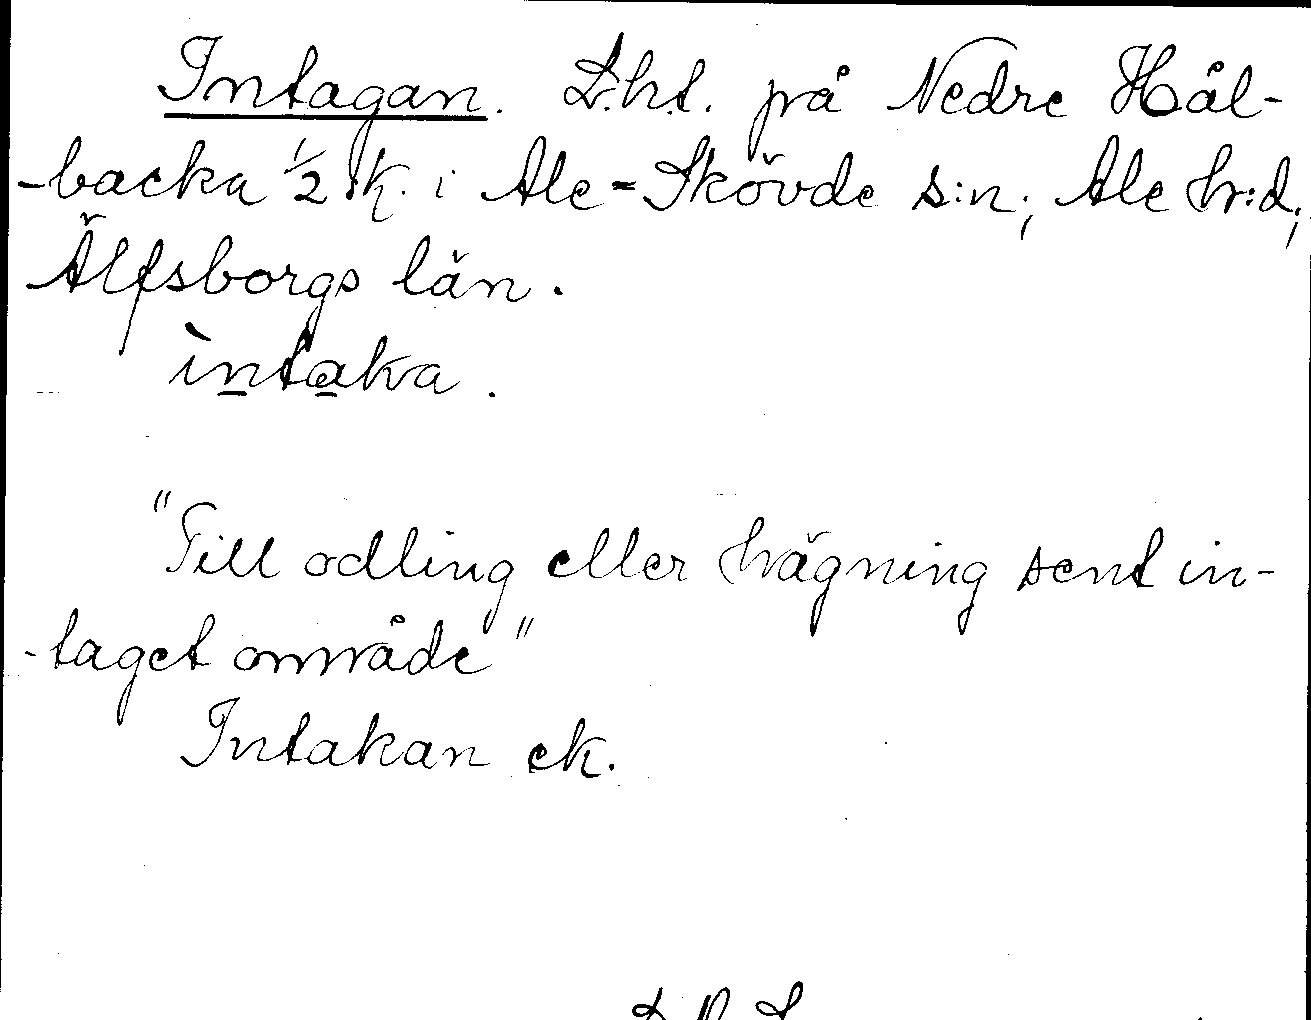 Intagan. L:ht. på Nedre Hål-
-backa 1/2 sk. i Ale-Skövde s:n, Ale hr:d,
Älfsborgs län.
ìntaka.
"Till odling eller hägning sent in-
-taget område"
Intakan ek.